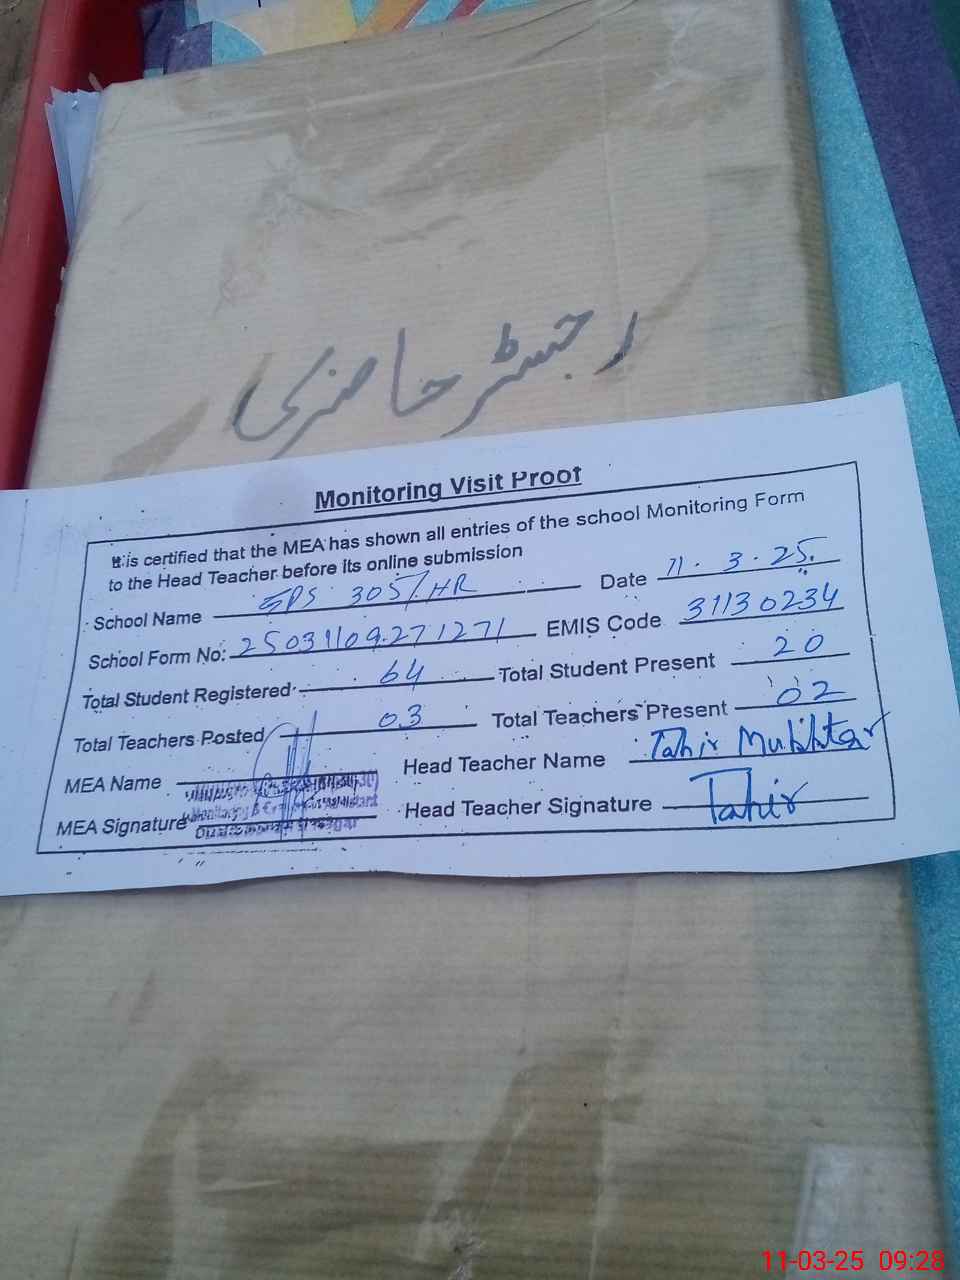 رجسٹر حاضری
Monitoring Visit Proof
It is certified that the MEA has shown all entries of the school Monitoring Form
to the Head Teacher before its online submission
School Name GPS 305/HR Date 11.3.25.
School Form No: 25031109271271 EMIS Code 31130234
Total Student Registered 64 Total Student Present 20
Total Teachers Posted 03 Total Teachers Present 02
MEA Name Head Teacher Name Tahir Mukhtar
MEA Signature Head Teacher Signature Tahir
11-03-25 09:28